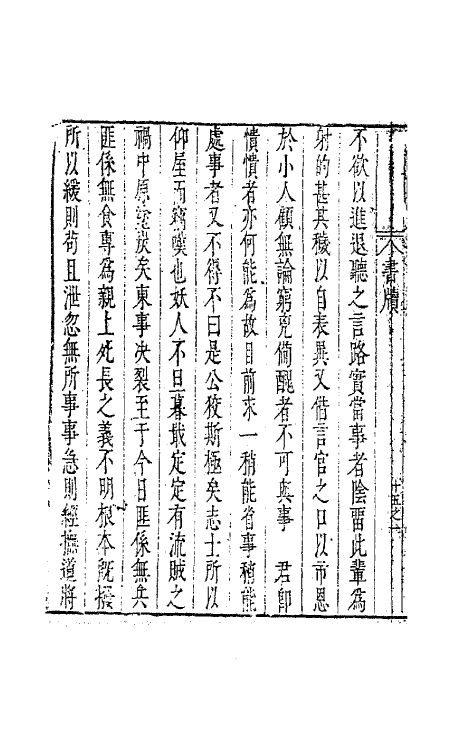 書牘
不欲以進退聽之言路實當事者陰畱此輩為
射的甚其穢以自表異又借言官之口以市恩
於小人顧無論窮兇備醜者不可與事 君卽
憒憒者亦何能為故目前求一稍能省事稍能
處事者又不得不曰是公狡斯極矣志士所以
仰屋而竊嘆也妖人不旦暮戢定定有流賊之
禍中原塗炭矣東事决裂至于今日匪係無兵
匪係無食專為親上死長之義不明根本旣撥
所以緩則苟且泄忽無所事事急則經撫道將